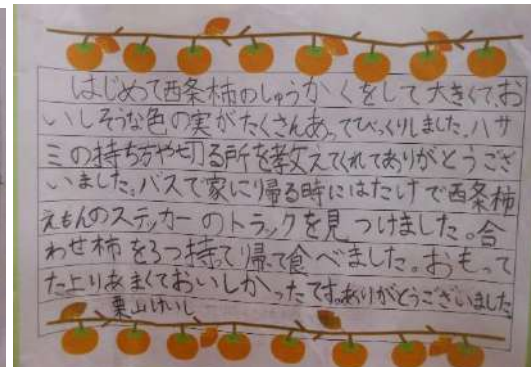 はじめて西条柿のしゅうかくをして大きくて、お
いしそうな色の実がたくさんあってびっくりしました。ハサ
ミの持ち方や切る所を教えてくれてありがとうござ
いました。バスで家に帰る時にはたけで西条柿
えもんのステッカーのトラックを見つけました。合
わせ柿を3つ持って帰って食べました。おもって
た上りあまくておいしかったです。ありがとうございました
栗山けいし